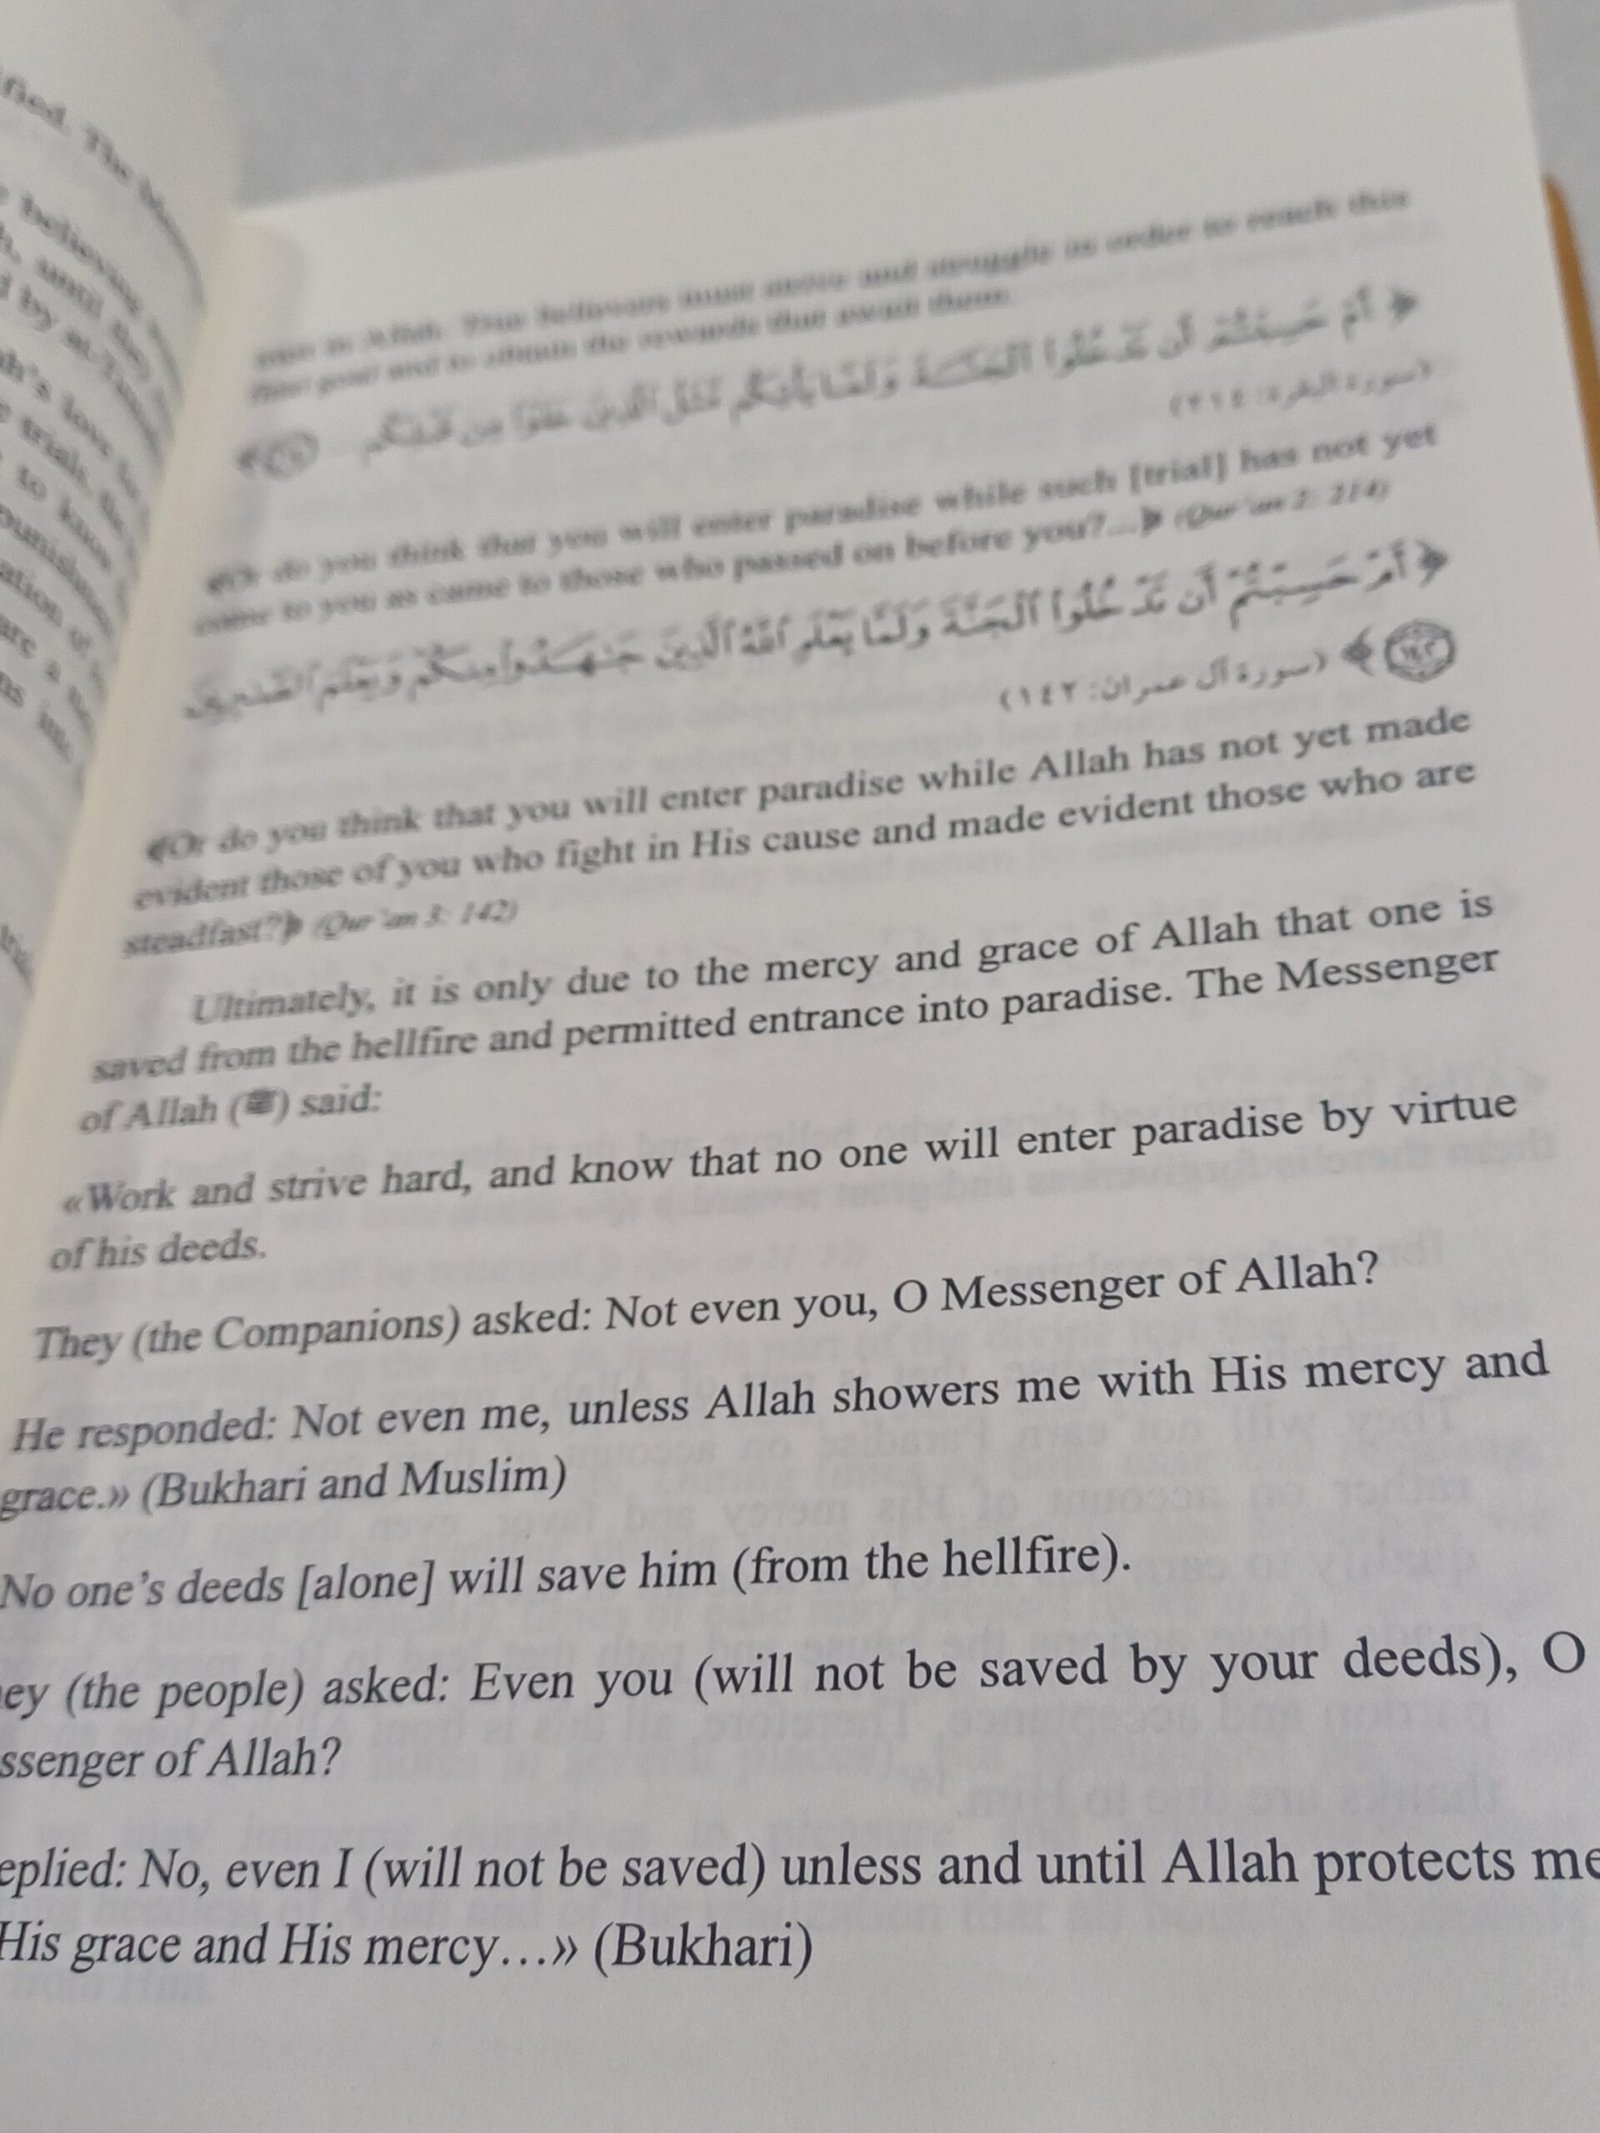 to Allah. True believers must strive and struggle in order to reach this
final goal and to obtain the rewards that await them.
﴿ أَمْ حَسِبْتُمْ أَن تَدْخُلُوا۟ ٱلْجَنَّةَ وَلَمَّا يَأْتِكُم مَّثَلُ ٱلَّذِينَ خَلَوْا۟ مِن قَبْلِكُم ...
(سورة البقرة: ٢١٤)
﴿Or do you think that you will enter paradise while such [trial] has not yet
come to you as came to those who passed on before you?...﴾ (Qur'an 2: 214)
﴿ أَمْ حَسِبْتُمْ أَن تَدْخُلُوا۟ ٱلْجَنَّةَ وَلَمَّا يَعْلَمِ ٱللَّهُ ٱلَّذِينَ جَـٰهَدُوا۟ مِنكُمْ وَيَعْلَمَ ٱلصَّـٰبِرِينَ
١٤٢ ﴾ (سورة آل عمران: ١٤٢)
﴿Or do you think that you will enter paradise while Allah has not yet made
evident those of you who fight in His cause and made evident those who are
steadfast?﴾ (Qur'an 3: 142)
Ultimately, it is only due to the mercy and grace of Allah that one is
saved from the hellfire and permitted entrance into paradise. The Messenger
of Allah (ﷺ) said:
«Work and strive hard, and know that no one will enter paradise by virtue
of his deeds.
They (the Companions) asked: Not even you, O Messenger of Allah?
He responded: Not even me, unless Allah showers me with His mercy and
grace.» (Bukhari and Muslim)
No one's deeds [alone] will save him (from the hellfire).
ey (the people) asked: Even you (will not be saved by your deeds), O
ssenger of Allah?
eplied: No, even I (will not be saved) unless and until Allah protects me
His grace and His mercy…» (Bukhari)